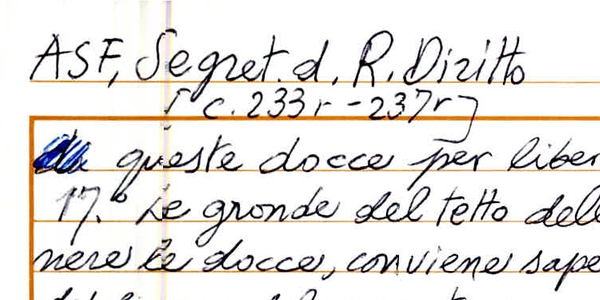 ASF, Segret. d. R. Diritto
[c. 233r - 237r]
queste docce per liber
17.° Le gronde del tetto delle
nere le docce, conviene sape